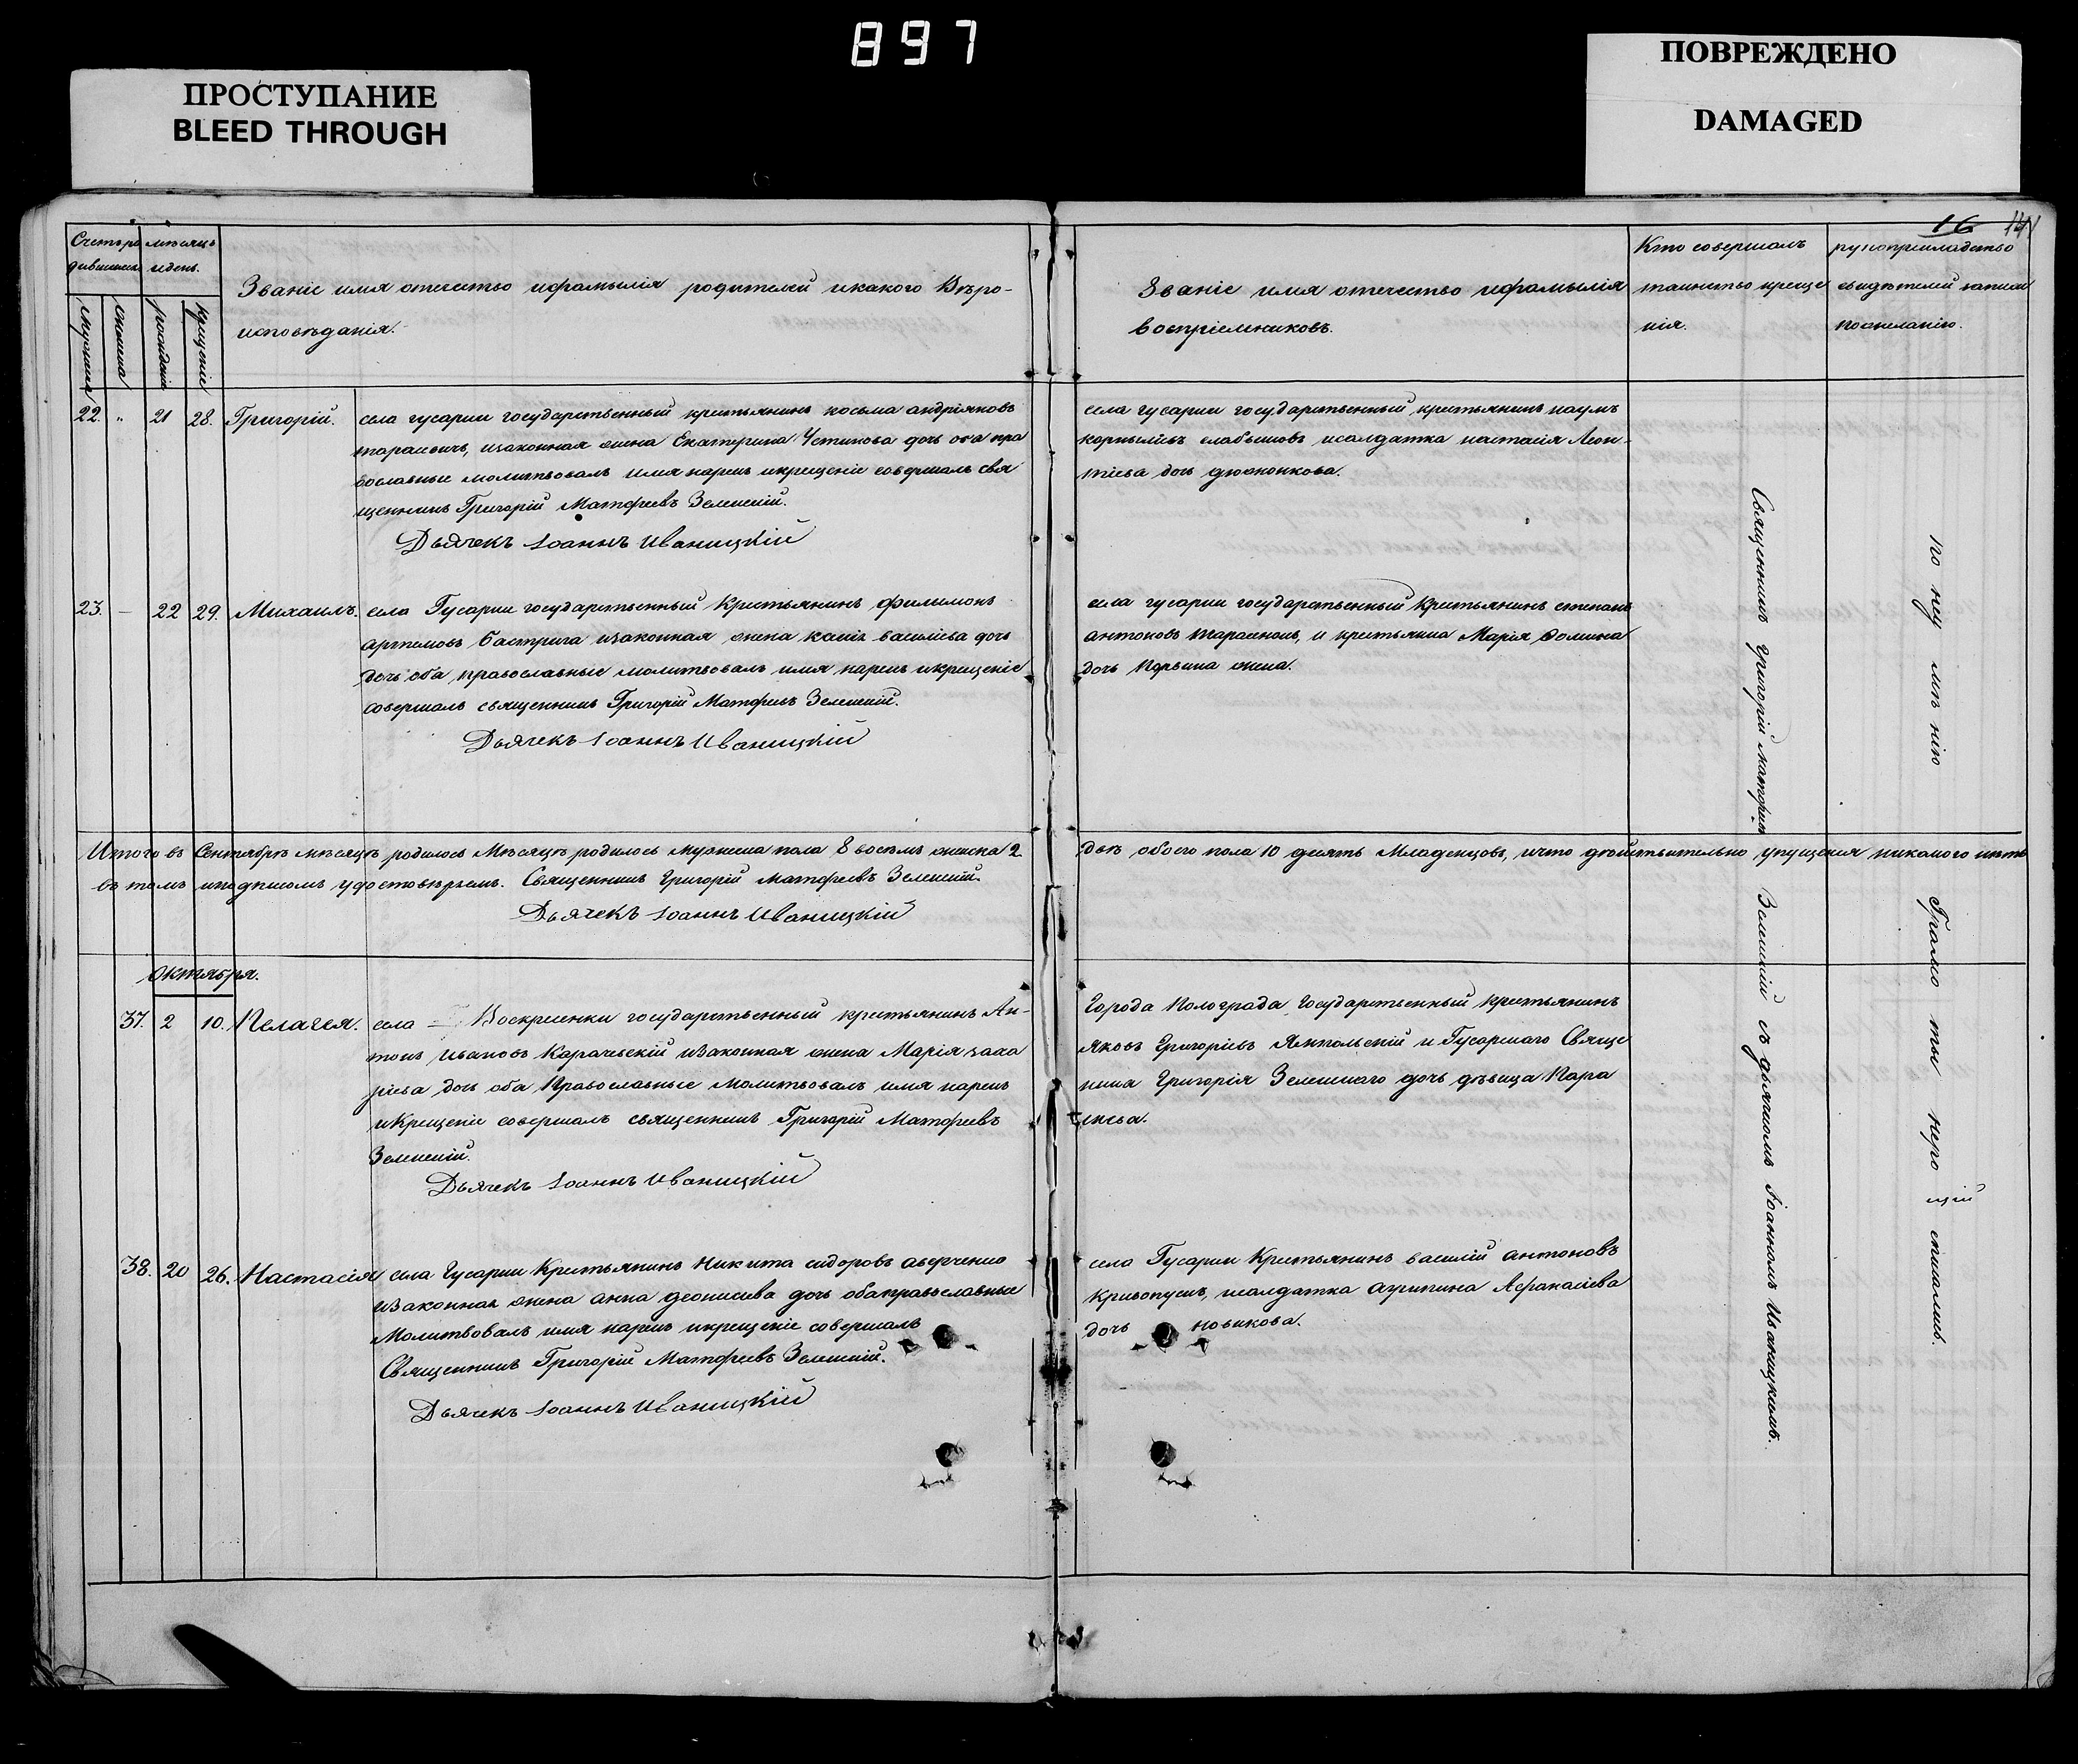 897
ПРОСТУПАНИЕ
BLEED THROUGH
ПОВРЕЖДЕНО
DAMAGED
16
Счетъ ро
дившихся
мѣсяцъ
идень.
мужеска
женска
рожденіе
крещеніе
Званіе имя отечество ифамылія родителей икакого Вѣро-
исповѣданія.
Званіе имя отечество ифамылія
воспріемниковъ.
Кто совершалъ
таинство креще
нія.
рукоприкладство
свидѣтелей записи
пожеланію.
22. " 21 28. Григорій.
села гусарки государственный крестьянинъ косьма андріяновъ
изаконная жена Екатерина дочь оба пра
вославные молитвовалъ имя нарекъ икрещеніе совершалъ свя
щенникъ Григорій Матфеевъ Зеленскій.
Дьячекъ Іоаннъ Иваницкій
села гусарки государственный крестьянинъ наумъ
исалдатка настасія Леон-
тіева дочь
23. — 22 29. Михаилъ.
села Гусарки государственный Крестьянинъ филымонъ
артемовъ бастрига изаконная жена василіева дочь
дочь оба православные молитвовалъ имя нарекъ икрещеніе
совершалъ священникъ Григорій Матфеевъ Зеленскій.
Дьячекъ Іоаннъ Иваницкій
села гусарки государственный Крестьянинъ степанъ
антоновъ и крестьянка Марія Фомина
дочь жена.
Итого въ Сентябрѣ мѣсяцѣ родилось Мѣсяцѣ родилось мужеска пола 8 восемь женска 2
двѣ обоего пола 10 десять Младенцовъ, ичто дѣйствительно упущенія никакого нѣтъ
въ томъ иподписомъ удостовѣряемъ. Священникъ Григорій Матфеевъ Зеленскій.
Дьячекъ Іоаннъ Иваницкій
Октября.
37. 2 10. Пелагея.
села Воскресенки государственный крестьянинъ Ан-
тонъ Ивановъ Карачевскій изаконная жена Марія заха
ріева дочь оба Православные Молитвовалъ имя нарекъ
иКрещеніе совершалъ священникъ Григорій Матфеевъ
Зеленскій.
Дьячекъ Іоаннъ Иваницкій
Города Нолограда Государственный крестьянинъ
Яковъ Григоріевъ Ямпольскій и Гусарскаго Свяще
ника Григорія Зеленскаго дочь дѣвица Пара
скева.
38. 20 26. Настасія
села Гусарки Крестьянинъ Никита сидоровъ аверченко
изаконная жена анна деонисіева дочь оба православные
Молитвовалъ имя нарекъ икрещеніе совершалъ
Священникъ Григорій Матфеевъ Зеленскій.
Дьячекъ Іоаннъ Иваницкій
села Гусарки Крестьянинъ василій антоновъ
исалдатка агрипина Афанасіева
дочь новикова.
Священникъ Григорій Матфеевъ Зеленскій съ дьячкомъ Іоанномъ Иваницкимъ.
по неу мѣ нію
Грамо ты